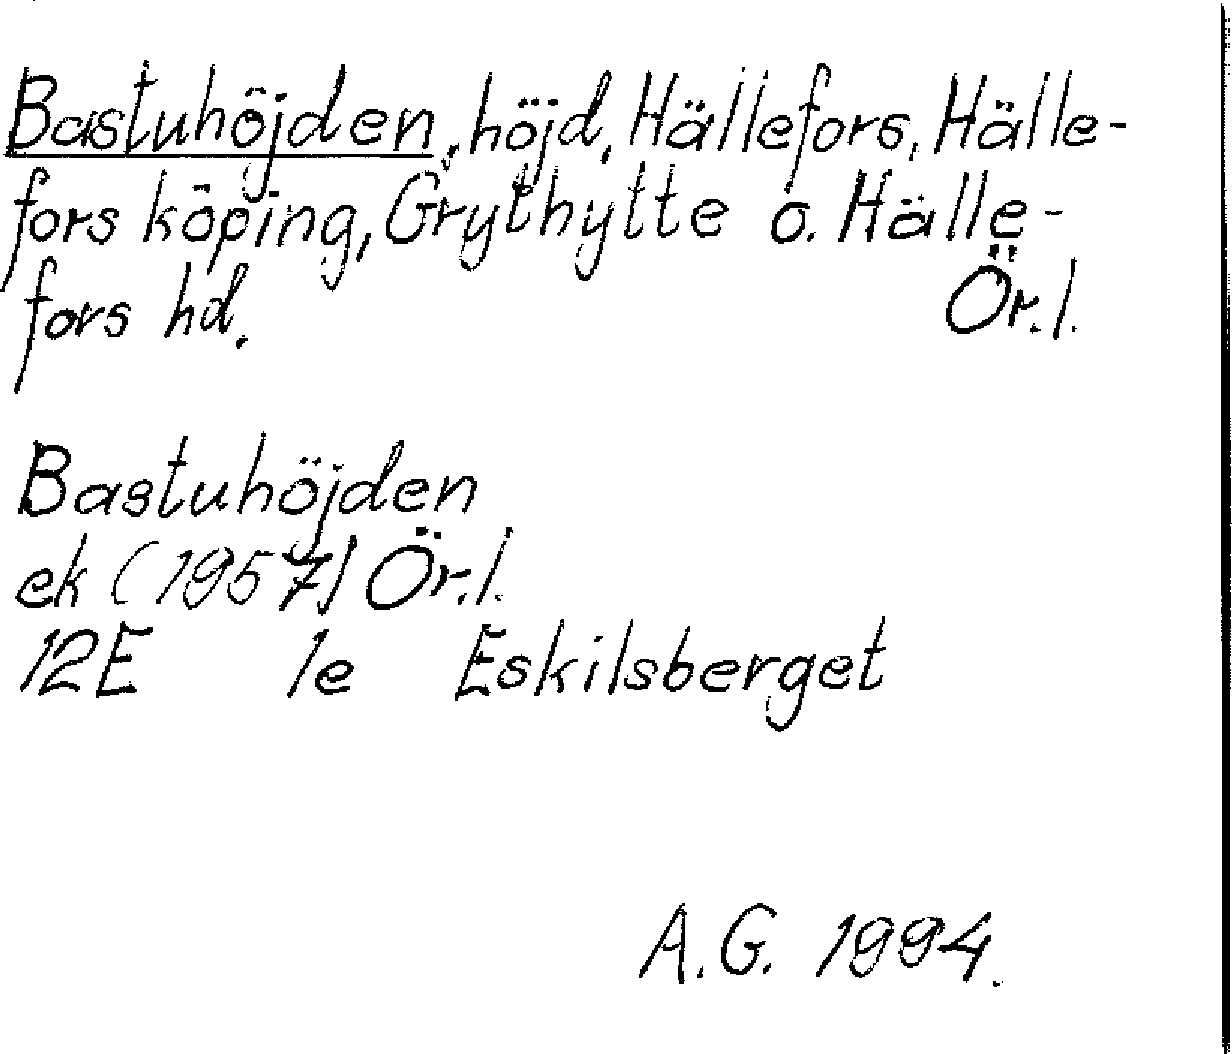 Bastuhöjden, höjd, Hällefors, Hälle-
fors köping, Grythytte o. Hälle-
fors hd. Ör.l.
Bastuhöjden
ek (1957) Ör.l.
12E 1e Eskilsberget
A.G. 1994.